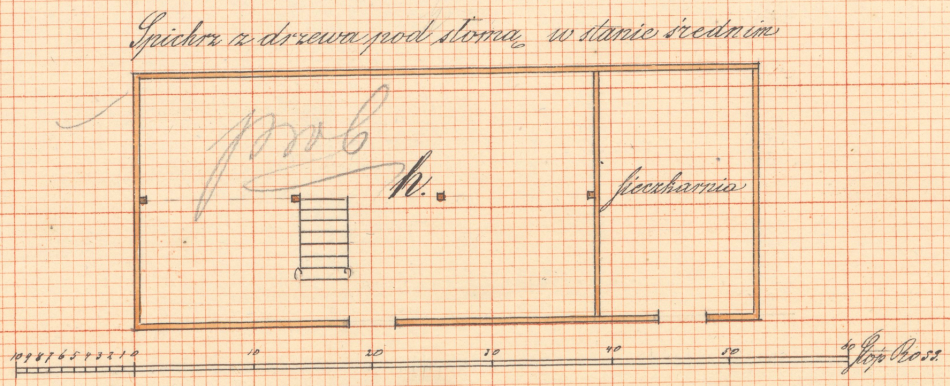 Spichrz z drzewa pod słomą w stanie średnim
prob
h.
sieczkarnia
10 9 8 7 6 5 4 3 2 1 0 10 20 30 40 50 60 Stóp Ross.